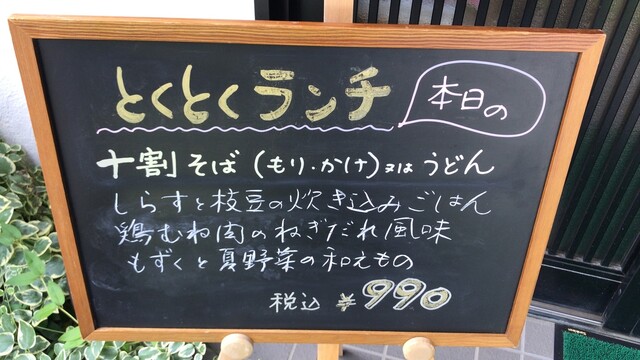 本日の
とくとくランチ
十割そば(もり・かけ)又はうどん
しらすと枝豆の炊き込みごはん
鶏むね肉のねぎだれ風味
もずくと夏野菜の和えもの
税込 ¥990